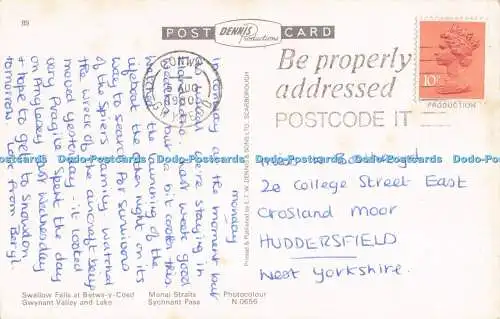 119
POST DENNIS Productions CARD
CONWY
AUG
1980
GWYNEDD
Be properly
addressed
POSTCODE IT
10P
PRODUCTION
Monday
In Conway at the moment but
we are staying in
last week good
weather but a bit cooler this.
Watched the launching of the
lifeboat the other night on its
way to search for survivors
of the Spiers family watched
the wreck of the aircraft being
moved yesterday - it looked
very fragile. Spent the day
on Anglesey last Wednesday
& hope to get to Snowdon
tomorrow. Love from Beryl.
2a College Street East
Crosland Moor
HUDDERSFIELD
West Yorkshire.
Printed & Published by E. T. W. DENNIS & SONS LTD., SCARBOROUGH
Dodo-Postcards Dodo-Postcards Dodo-Postcards Dodo-Postcards Dodo-Postcards
Swallow Falls at Betws-y-Coed Menai Straits Photocolour
Gwynant Valley and Lake Sychnant Pass N 0656